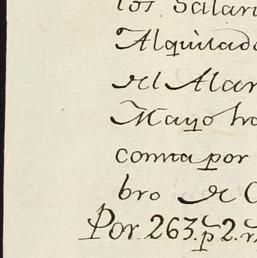 los Salari
Alquilado
del Alar
Mayo ha
conna por
bro de C
Por 263.p 2.r